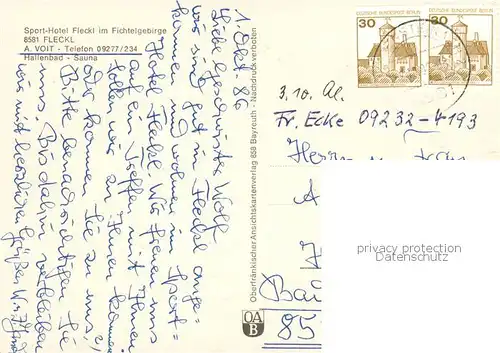 Sport-Hotel Fleckl im Fichtelgebirge
8581 FLECKL
A. VOIT - Telefon 09277/234
Hallenbad - Sauna
1. Okt. 86
Liebe Geschwister Wolf
wir sind gut in Fleckl ange=
kommen und wohnen im Sport=
Hotel Fleckl. Wir freuen uns
auf ein Treffen mit Ihnen
sollen wir zu Ihnen kommen
oder kommen Sie zu uns?
Bitte benachrichtigen Sie
uns. Bis dahin verbleiben
wir mit herzlichen Grüßen
Oberfränkischer Ansichtskartenverlag 858 Bayreuth - Nachdruck verboten
OA
B
DEUTSCHE BUNDESPOST BERLIN
30
DEUTSCHE BUNDESPOST BERLIN
30
3.10. Al.
Fr. Ecke 09232-4193
Herrn
privacy protection
Datenschutz
85